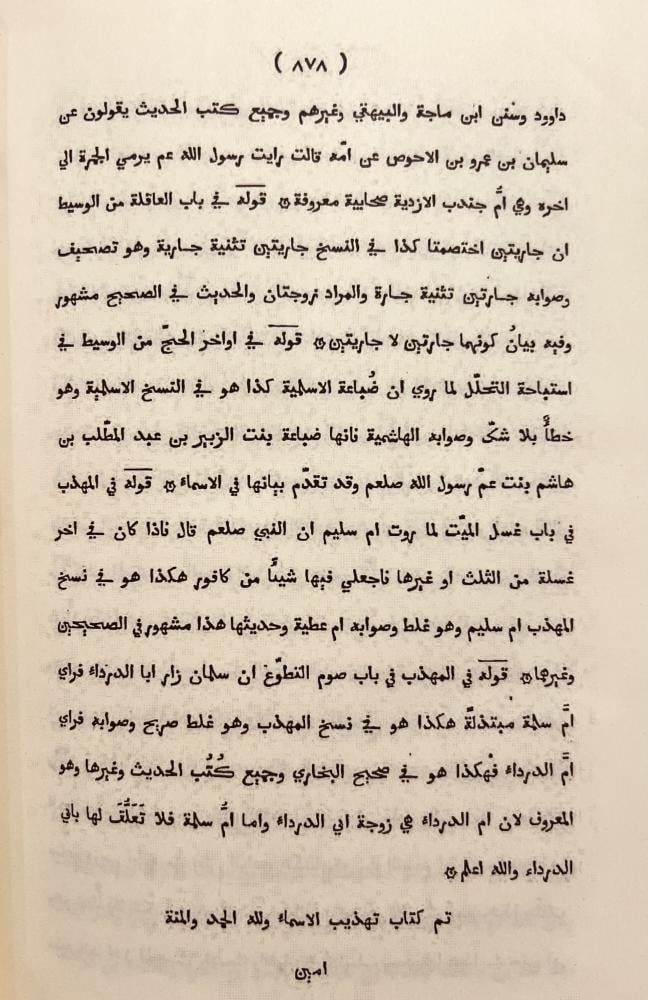 ( ٨٧٨ )
داوود وسُنن ابن ماجة والبيهقي وغيرهم وجميع كتب الحديث يقولون عن
سليمان بن عمرو بن الاحوص عن امّه قالت رايت رسول الله عم يرمي الجمرة الي
اخره وهي امّ جندب الازدية صحابية معروفة ۞ قوله في باب العاقلة من الوسيط
ان جاريتين اختصمتا كذا في النسخ جاريتين تثنية جارية وهو تصحيف
وصوابه جارتين تثنية جارة والمراد زوجتان والحديث في الصحيح مشهور
وفيه بيانُ كونهما جارتين لا جاريتين ۞ قوله في اواخر الحجّ من الوسيط في
استباحة التحلّل لما روي ان ضُباعة الاسلمية كذا هو في النسخ الاسلمية وهو
خطأٌ بلا شكّ وصوابه الهاشمية فانها ضباعة بنت الزبير بن عبد المطّلب بن
هاشم بنت عمّ رسول الله صلعم وقد تقدّم بيانها في الاسماء ۞ قوله في المهذب
في باب غسل الميّت لما روت ام سليم ان النبي صلعم قال فاذا كان في اخر
غسلة من الثلث او غيرها فاجعلي فيها شيئًا من كافور هكذا هو في نسخ
المهذب ام سليم وهو غلط وصوابه ام عطية وحديثها هذا مشهور في الصحيحين
وغيرها ۞ قوله في المهذب في باب صوم التطوّع ان سلمان زار ابا الدرداء فراي
امَّ سلمة مبتذلةً هكذا هو في نسخ المهذب وهو غلط صريح وصوابه فراي
امَّ الدرداء فهكذا هو في صحيح البخاري وجميع كُتُب الحديث وغيرها وهو
المعروف لان ام الدرداء هي زوجة ابي الدرداء واما امُّ سلمة فلا تَعَلُّقَ لها بابي
الدرداء والله اعلم ۞
تم كتاب تهذيب الاسماء ولله الحمد والمنة
امين